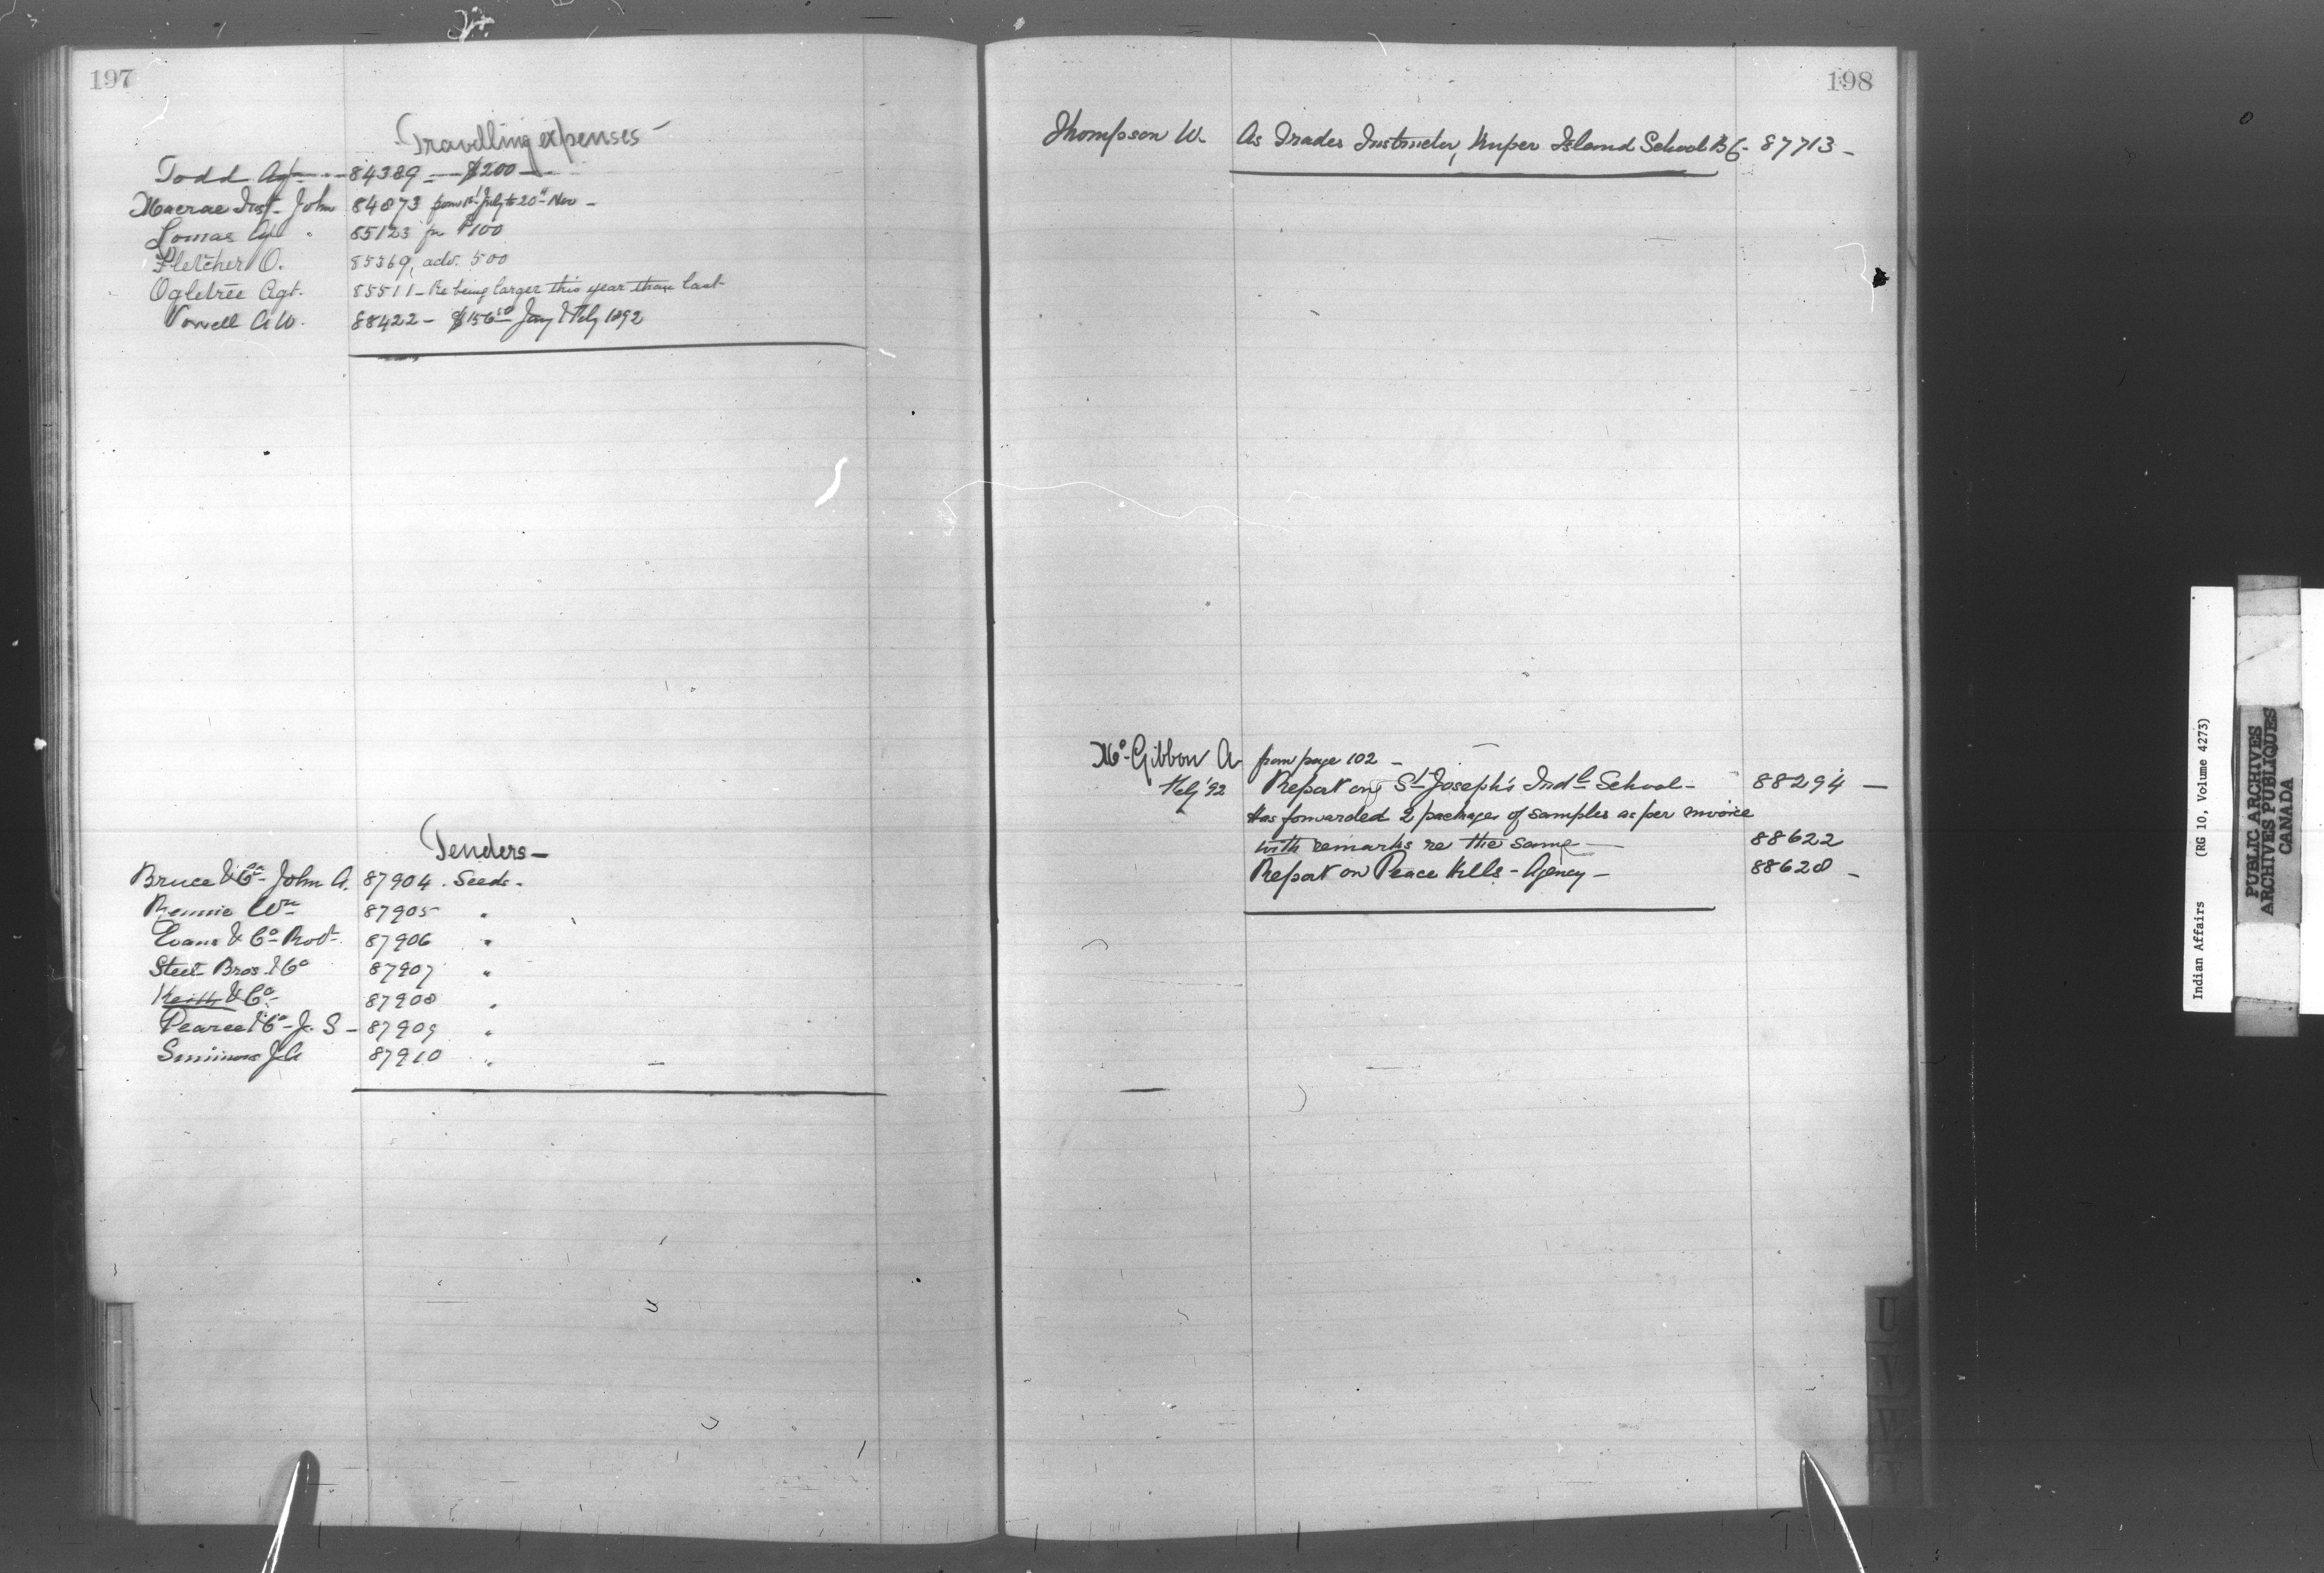 197
Travelling expenses -
Todd Agt - 84389 - $200 -
Macrae Inst. John 84873 from 1st July to 20th Nov -
Lomas Agt " 85123 for $100
Fletcher O. 85369, adv. 500
Ogletree Agt. 85511 - Re being larger this year than last
Vowell A W. 88422 - $156.50 Jany & Feby 1892
Tenders -
Bruce & Co - John A. 87904 . Seeds .
Rennie Wm 87905 "
Evans & Co - Robt. 87906 "
Steel Bros. & Co 87907 "
Keith & Co - 87908 "
Pearce & Co - J. S - 87909 "
Simmons J. A 87910 "
198
Thompson W. As Trades Instructor, Kuper Island School B C - 87713 -
Mc Gibbon A from page 102 -
Feby '92 Report on St Joseph's Indl School - 88294 -
Has forwarded 2 packages of samples as per invoice
with remarks re the same - 88622
Report on Peace Hills - Agency - 88628 -
U
V
W
Y
Indian Affairs (RG 10, Volume 4273)
PUBLIC ARCHIVES
ARCHIVES PUBLIQUES
CANADA